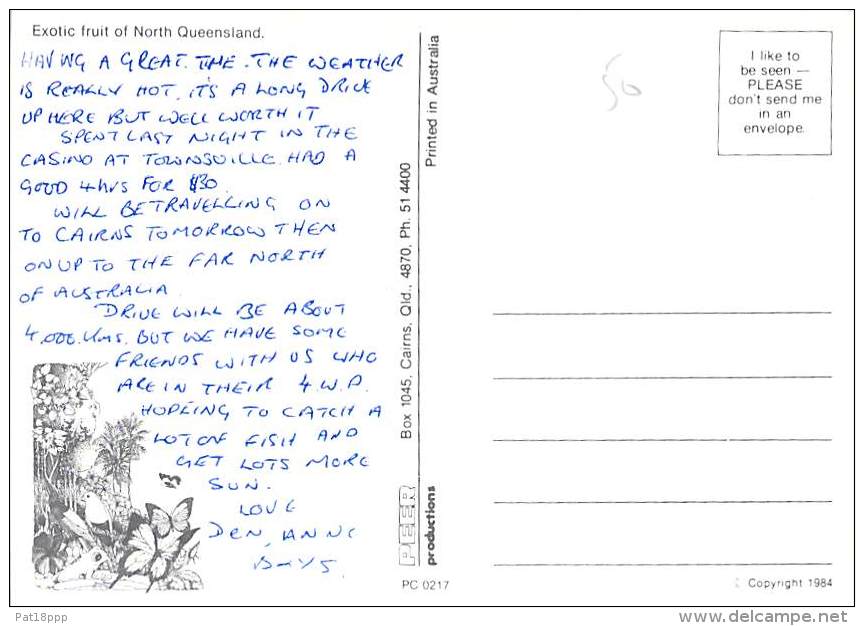 Exotic fruit of North Queensland.
HAVING A GREAT TIME. THE WEATHER
IS REALLY HOT. IT'S A LONG DRIVE
UP HERE BUT WELL WORTH IT
SPENT LAST NIGHT IN THE
CASINO AT TOWNSVILLE. HAD A
GOOD 4 hrs FOR $30.
WILL BE TRAVELLING ON
TO CAIRNS TOMORROW THEN
ON UP TO THE FAR NORTH
OF AUSTRALIA.
DRIVE WILL BE ABOUT
4,000 Kms. BUT WE HAVE SOME
FRIENDS WITH US WHO
ARE IN THEIR 4.W.D.
HOPEING TO CATCH A
LOT OF FISH AND
GET LOTS MORE
SUN.
LOVE
DEN, ANNE
Box 1045, Cairns, Qld., 4870, Ph. 51 4400
Printed in Australia
PEER
productions
PC 0217
50
I like to
be seen —
PLEASE
don't send me
in an
envelope.
Copyright 1984
Pat18ppp
delcampe.net